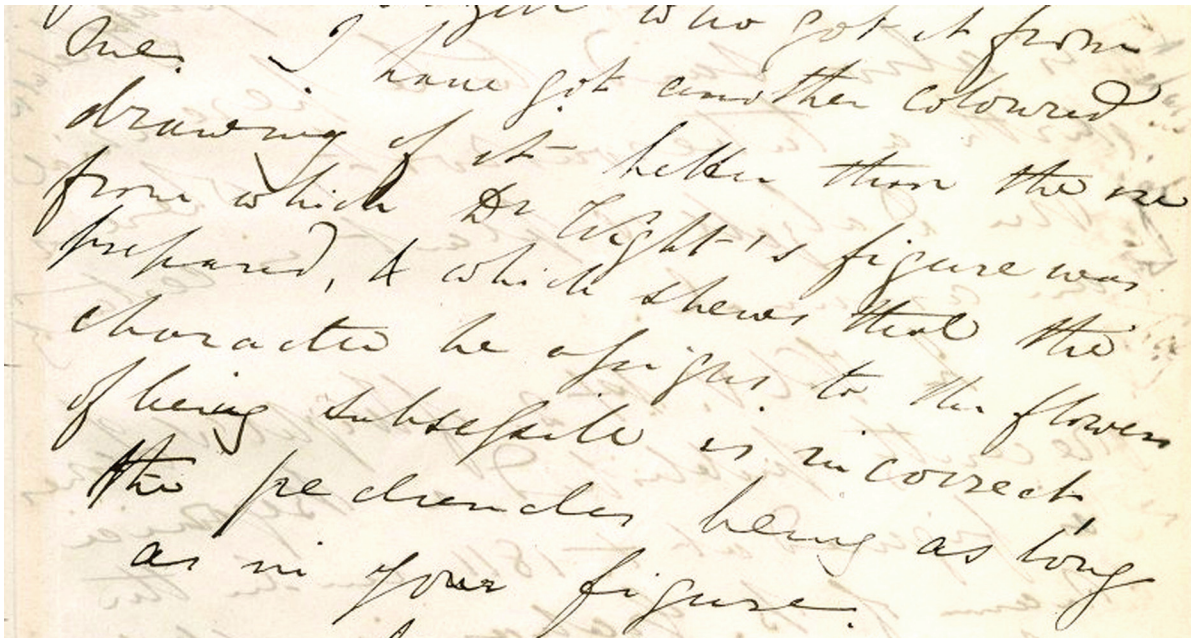 who got it from
me. I have got another coloured
drawing of it better than the one
from which Dr Wight's figure was
prepared, & which shews that the
character he assigns to the flowers
of being subsessile is incorrect,
the peduncles being as long
as in your figure.